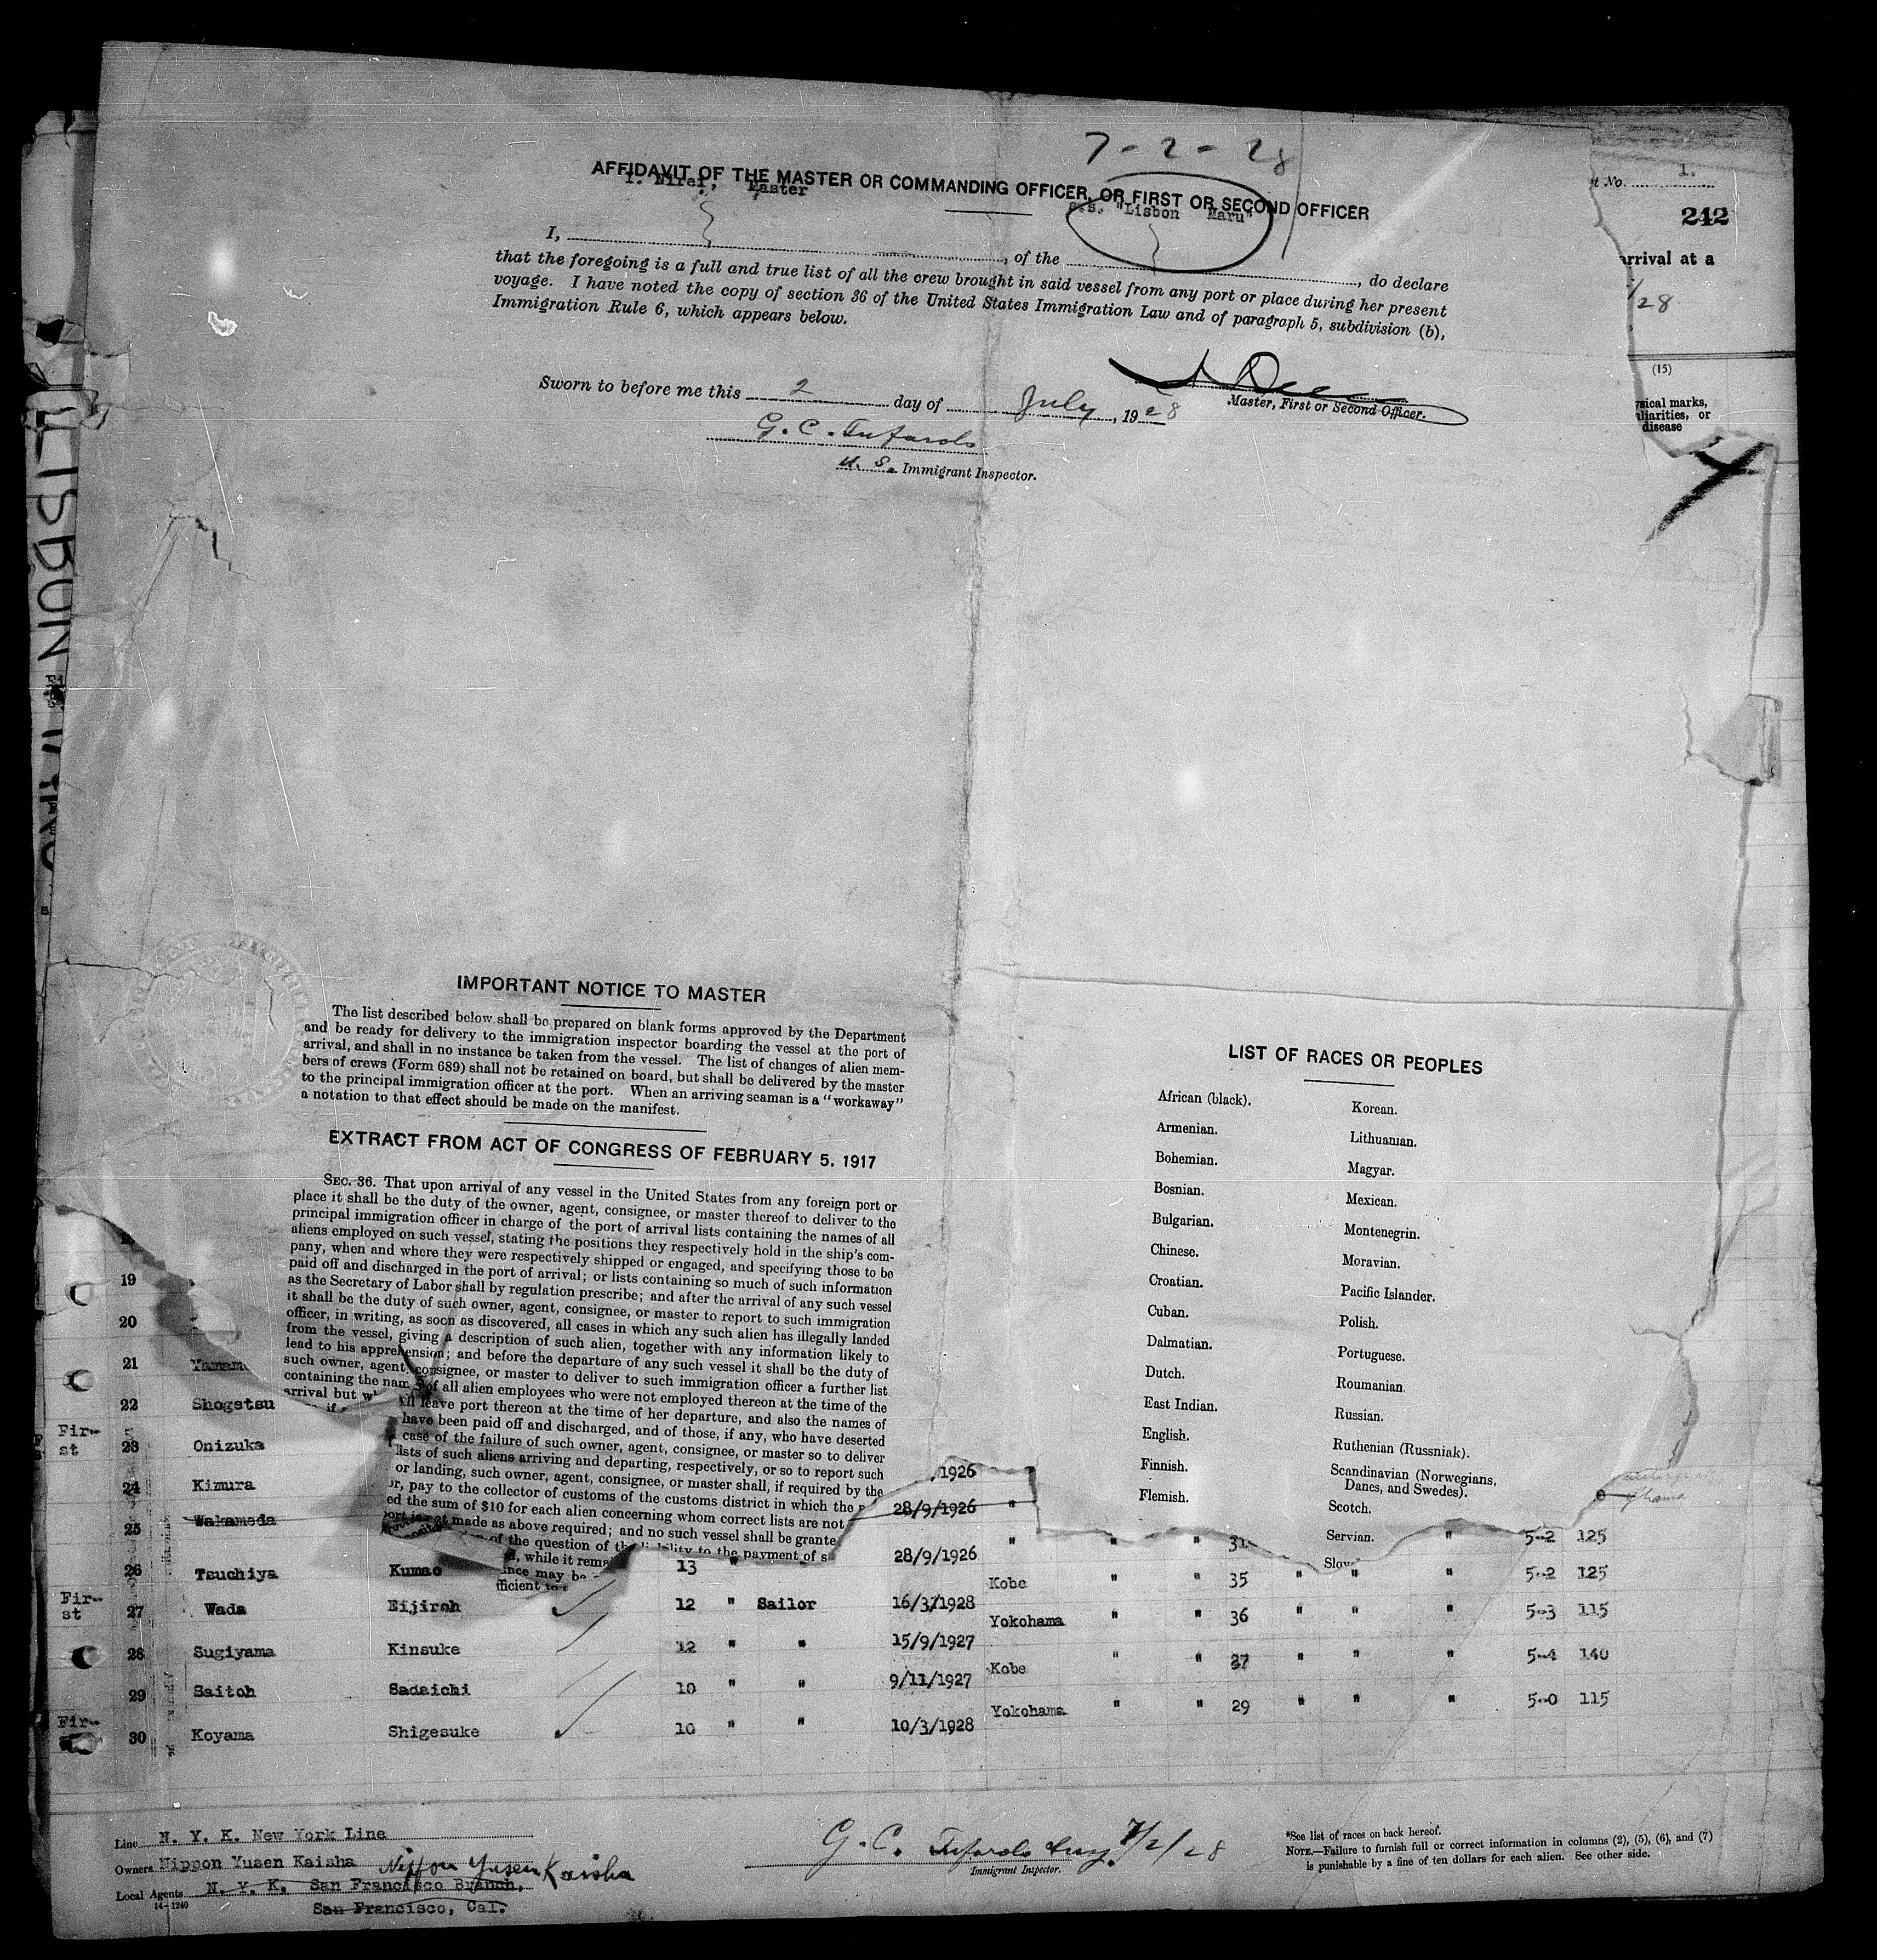 7-2-28
AFFIDAVIT OF THE MASTER OR COMMANDING OFFICER, OR FIRST OR SECOND OFFICER
Master
s.s. "Lisbon Maru"
I, , of the , do declare
that the foregoing is a full and true list of all the crew brought in said vessel from any port or place during her present
voyage. I have noted the copy of section 36 of the United States Immigration Law and of paragraph 5, subdivision (b),
Immigration Rule 6, which appears below.
Master, First or Second Officer.
Sworn to before me this 2 day of July, 1928
G. C. Tufarolo
U. S. Immigrant Inspector.
t No. 1.
242
arrival at a
/28
(15)
ysical marks,
uliarities, or
disease
LISBON
IMPORTANT NOTICE TO MASTER
The list described below shall be prepared on blank forms approved by the Department
and be ready for delivery to the immigration inspector boarding the vessel at the port of
arrival, and shall in no instance be taken from the vessel. The list of changes of alien mem-
bers of crews (Form 689) shall not be retained on board, but shall be delivered by the master
to the principal immigration officer at the port. When an arriving seaman is a "workaway"
a notation to that effect should be made on the manifest.
EXTRACT FROM ACT OF CONGRESS OF FEBRUARY 5, 1917
SEC. 36. That upon arrival of any vessel in the United States from any foreign port or
place it shall be the duty of the owner, agent, consignee, or master thereof to deliver to the
principal immigration officer in charge of the port of arrival lists containing the names of all
aliens employed on such vessel, stating the positions they respectively hold in the ship's com-
pany, when and where they were respectively shipped or engaged, and specifying those to be
paid off and discharged in the port of arrival; or lists containing so much of such information
as the Secretary of Labor shall by regulation prescribe; and after the arrival of any such vessel
it shall be the duty of such owner, agent, consignee, or master to report to such immigration
officer, in writing, as soon as discovered, all cases in which any such alien has illegally landed
from the vessel, giving a description of such alien, together with any information likely to
lead to his apprehension; and before the departure of any such vessel it shall be the duty of
such owner, agent, consignee, or master to deliver to such immigration officer a further list
containing the nam of all alien employees who were not employed thereon at the time of the
arrival but w ll leave port thereon at the time of her departure, and also the names of
if have been paid off and discharged, and of those, if any, who have deserted
case of the failure of such owner, agent, consignee, or master so to deliver
lists of such aliens arriving and departing, respectively, or so to report such
or landing, such owner, agent, consignee, or master shall, if required by the
or, pay to the collector of customs of the customs district in which the
ed the sum of $10 for each alien concerning whom correct lists are not
made as above required; and no such vessel shall be grante
of the question of the liability to the payment of s
, while it rema
ince may be
fficient to
LIST OF RACES OR PEOPLES
African (black).
Armenian.
Bohemian.
Bosnian.
Bulgarian.
Chinese.
Croatian.
Cuban.
Dalmatian.
Dutch.
East Indian.
English.
Finnish.
Flemish.
Korean.
Lithuanian.
Magyar.
Mexican.
Montenegrin.
Moravian.
Pacific Islander.
Polish.
Portuguese.
Roumanian
Russian.
Ruthenian (Russniak).
Scandinavian (Norwegians,
Danes, and Swedes).
Scotch.
Servian.
Slov
19
20
21 Yamam
22 Shogetsu
Fir-
st
23 Onizuka
24 Kimura , 1926
25 Wakameda 28/9/1926 "
28/9/1926 " " 31 " 5-2 125
26 Tsuchiya Kumao 13 " Kobe " " 35 " " " 5-2 125
Fir-
st
27 Wada Eijiroh 12 " Sailor 16/3/1928 Yokohama " " 36 " " " 5-3 115
28 Sugiyama Kinsuke 12 " " 15/9/1927 Kobe " " 27 " " " 5-4 140
29 Saitoh Sadaichi 10 " " 9/11/1927 Yokohama " " 29 " " " 5-0 115
Fir-
30 Koyama Shigesuke 10 " " 10/3/1928
Line N. Y. K. New York Line
Owners Nippon Yusen Kaisha Nippon Yusen Kaisha
Local Agents N. Y. K. San Francisco Branch,
14-1240
San Francisco, Cal.
G. C. Tufarolo 7/2/28
Immigrant Inspector.
*See list of races on back hereof.
NOTE.—Failure to furnish full or correct information in columns (2), (5), (6), and (7)
is punishable by a fine of ten dollars for each alien. See other side.